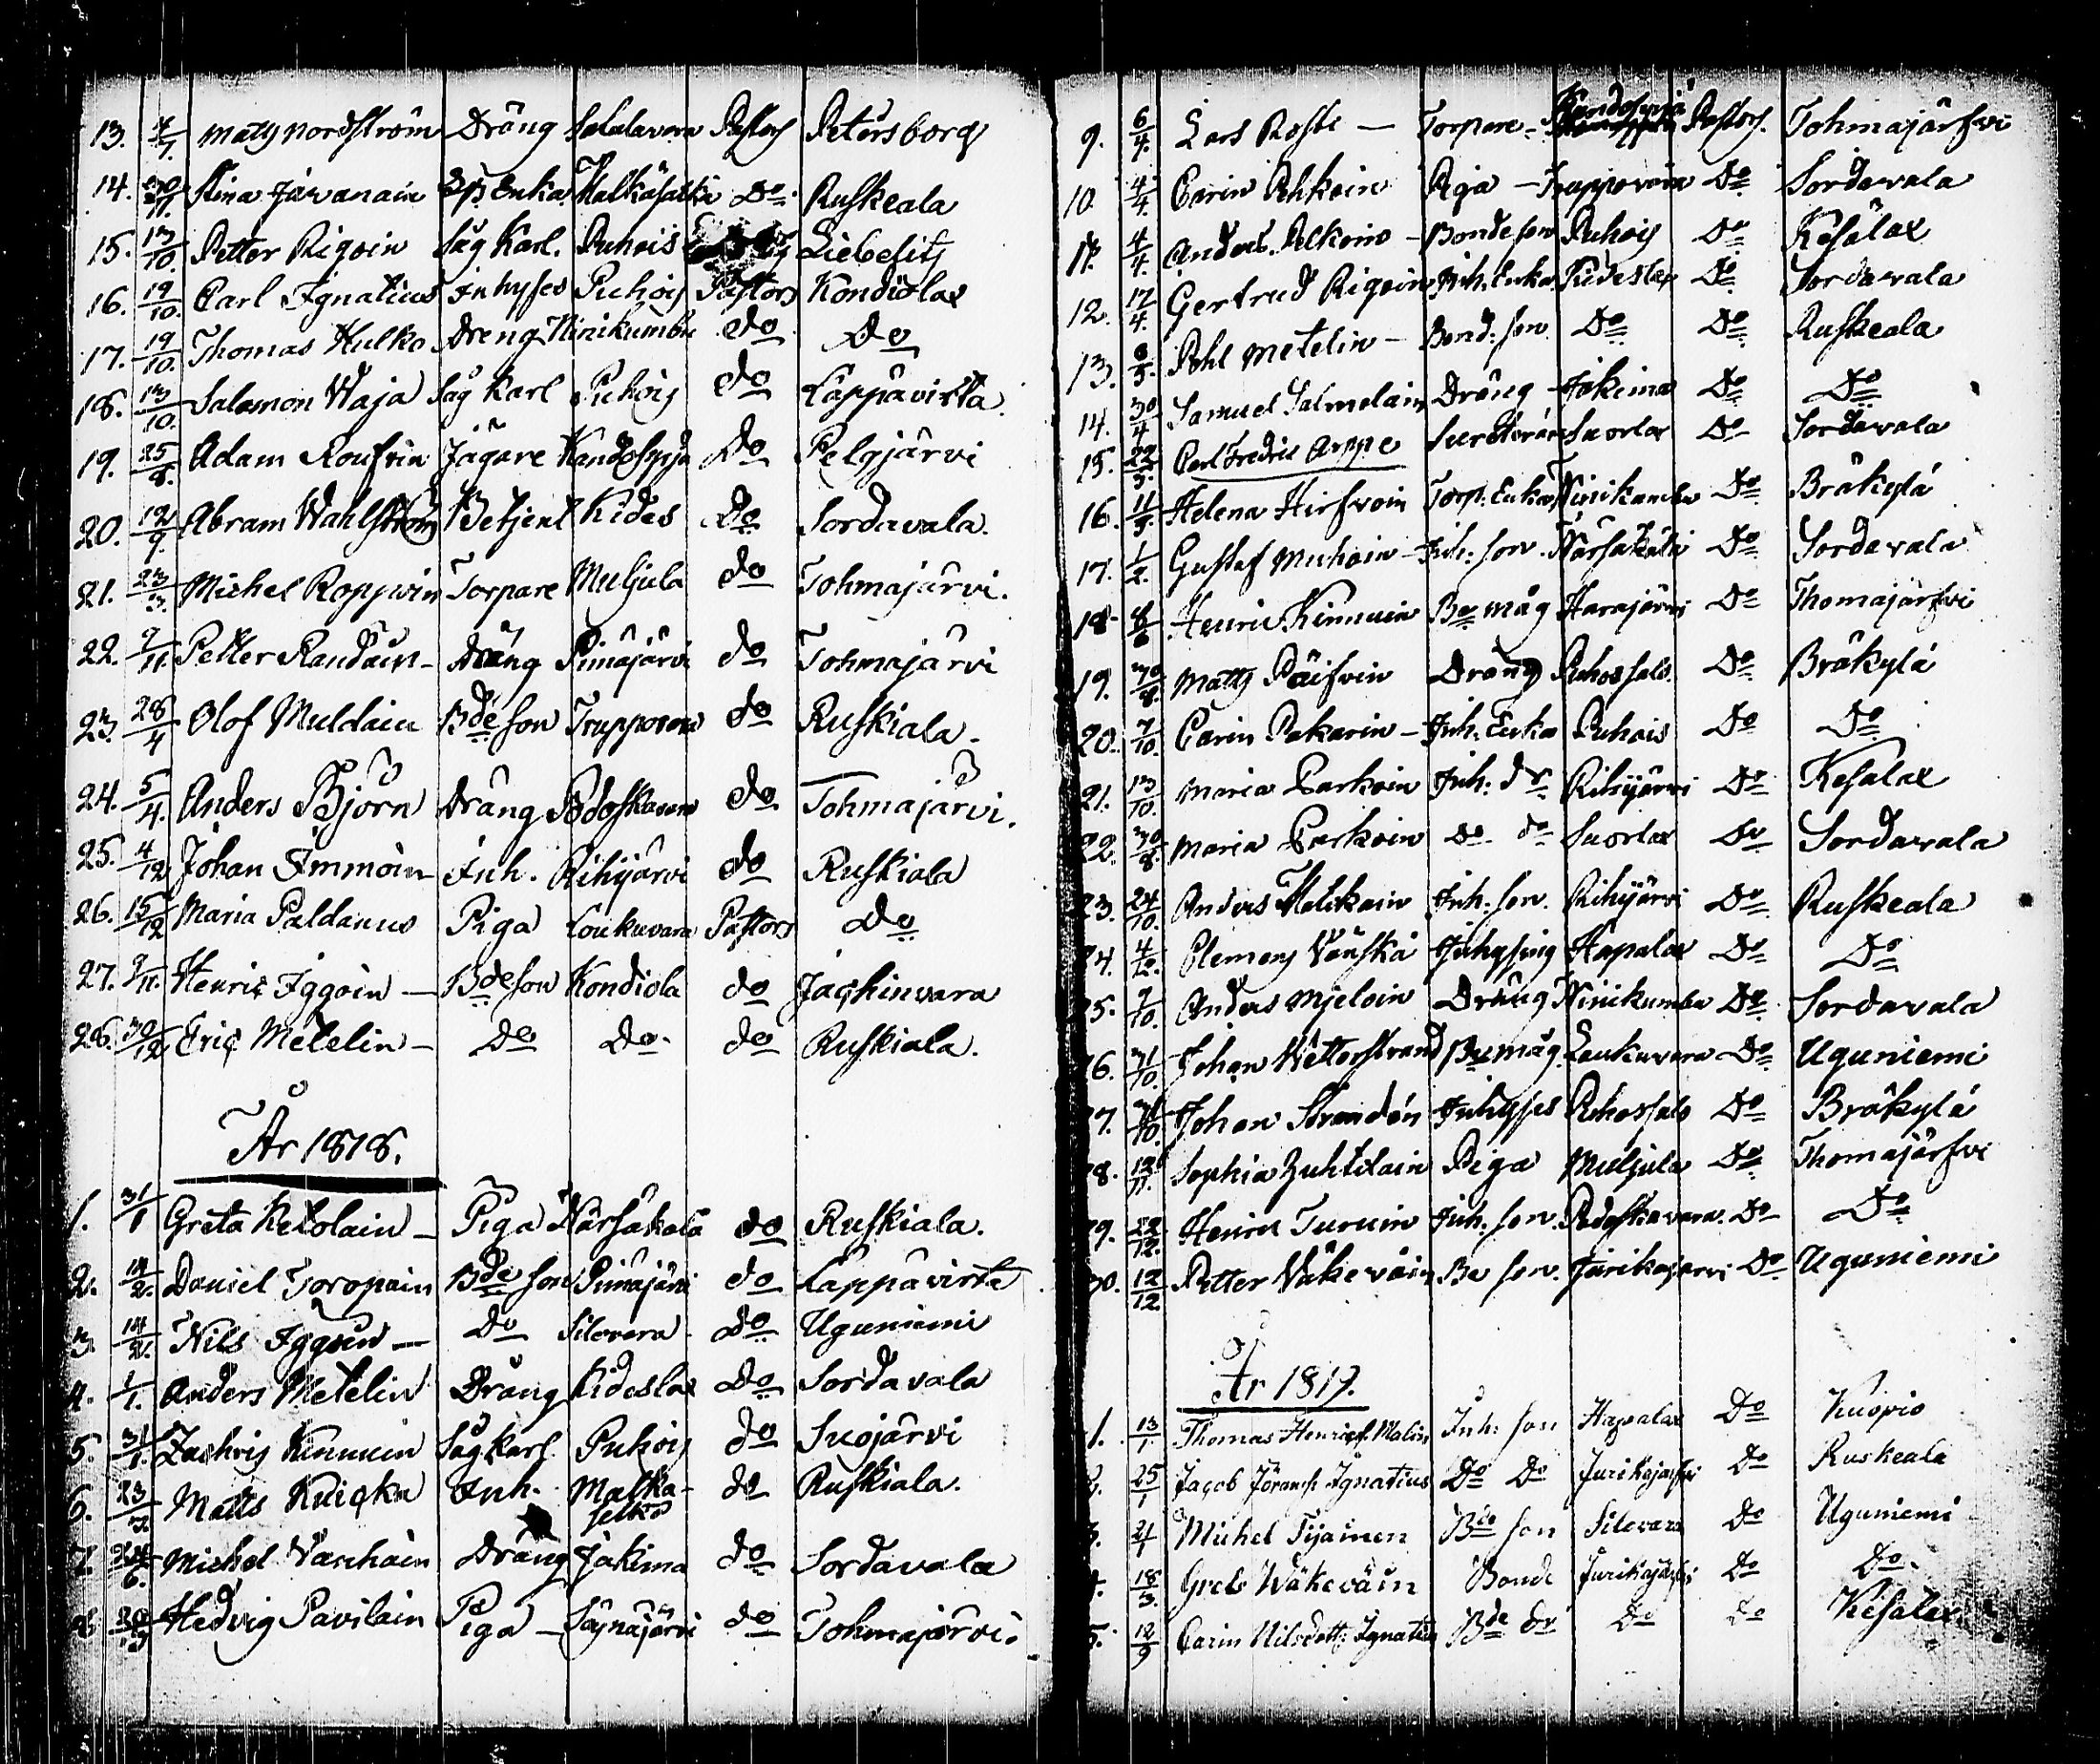 13. 4/7. Matts Nordström Dräng Salalavara Pastors Petersborg
14. 30/11. Stina Jävanain Enka Matkäsälkä Do Ruskeala
15. 13/10. Petter Rigoin Såg Karl. Puhois Liebelitz
16. 19/10. Carl Ignatius Inhyses Puhois Pastors Kondiolax
17. 19/10. Thomas Hulko Dreng Niinikumbu do Do
18. 13/10. Salomon Waja Såg Karl Puhois do Lappavirta
19. 25/8. Adam Roufvin Jägare Kandosyrja Do Pelgjärvi
20. 12/9. Abram Wahlström Betjent Kides Do Sordavala.
21. 23/3. Michel Roppoin Torpare Muljula do Tohmajärvi.
22. 9/11. Petter Randain - Dräng Piimäjärvi do Tohmajärvi
23. 28/4 Olof Muldain Bde son Trupporova do Ruskiala.
24. 5/4. Anders Björn Dräng Podoskavara do Tohmajärvi.
25. 4/12 Johan Immoin Inh. Rihijärvi do Ruskiala
26. 15/12 Maria Paldanus Piga Loukuvara Pastors do
27. 9/11. Henric Iggoin — Bde son Kondiola do Jachinvara
28. 30/12 Eric Metelin — Do Do do Ruskiala.
År 1818.
1. 31/1 Greta Ketolain - Piga Närsäkälä do Ruskiala.
2. 14/2. Daniel Toropain Bde son Piimäjärvi do Lappavirta
3. 14/2. Nils Iggoin — Do Silovara do Uguniemi
4. 1/1. Anders Metelin Dräng Kideslax Do Sordavala
5. 31/1. Zachris Kinnuin Såg Karl Puhois do Suojärvi
6. 23/3. Matts Kuicka Inh. Matka- do Ruskiala.
selkä
7. 24/6. Michel Vänchäin Dräng Jakima do Sordavala
8. Hedvig Pavilain Piga — Säynäjärvi do Tohmajärvi.
9. 6/4. Lars Rosti — Torpare - Kandosyrjä Pastors. Tohmajärfvi
10. 4/4. Carin Pehkoin Piga — Trupporova Do Sordavala
11. 4/4. Anders Pelkoin - Bonde son Puhois Do Kesälax
12. 17/4. Gertrud Rigoin Inh. Enka Kideslax Do Sordavala
13. 6/5. Pohl Metelin - Bond. son Do Do Ruskeala
14. 30/4 Samuel Jalmelain Dräng Jakima Do Do
15. 22/5. Carl Fredric Arppe Suorlax Do Sordavala
16. 11/5. Helena Hirfvoin Torp. Enka Niinikumbu Do Bräkylä
17. 1/2. Gustaf Muhoin - Inh. son. Närsäkälä Do Sordavala
18. 6/6 Henric Kinnuin Be måg Harajärvi Do Thomajärfvi
19. 30/8. Matts Päifvin Dräng Puhossalo Do Bräkylä
20. 7/10. Carin Pakarin — Inh. Enka Puhois Do Do
21. 13/10. Maria Parkoin Inh. dr. Rihijärvi Do Kesälax
22. 30/8. Maria Parkoin Do do Suorlax Do Sordavala
23. 24/10. Anders Malikain Inh. son. Rihijärvi Do Ruskeala
24. 4/12. Clemens Vänskä Inhysing Hapalax Do Do
25. 9/10. Anders Mjeloin Dräng Niinikumbu Do Sordavala
26. 31/10. Johan Wetterstrand Be måg Loukuvara Do Uguniemi
27. 31/10. Johan Strandén Inhyses Puhossalo Do Bräkylä
28. 12/11. Sophia Juhtilain Piga Muljula Do Thomajärfvi
29. 22/12. Henric Turuin Inh. son. Podoskavara. Do Do
30. 12/12. Petter Väkeväin Be son. Jurikajärvi Do Uguniemi
År 1819.
1. 13/1. Thomas Henricss. Malin Inh: son Hapalax Do Kuopio
2. 25/1 Jacob Jöranss. Ignatius Do Do Jurikajärfvi Do Ruskeala
3. 24/1 Michel Tijainen Bde son Silovara Do Uguniemi
4. 18/3 Greta Wäkeväin Bonde Jurikajärfvi Do Do.
5. 12/9 Carin Nilsdottr Ignatius Bde dr Do Do Kesälax